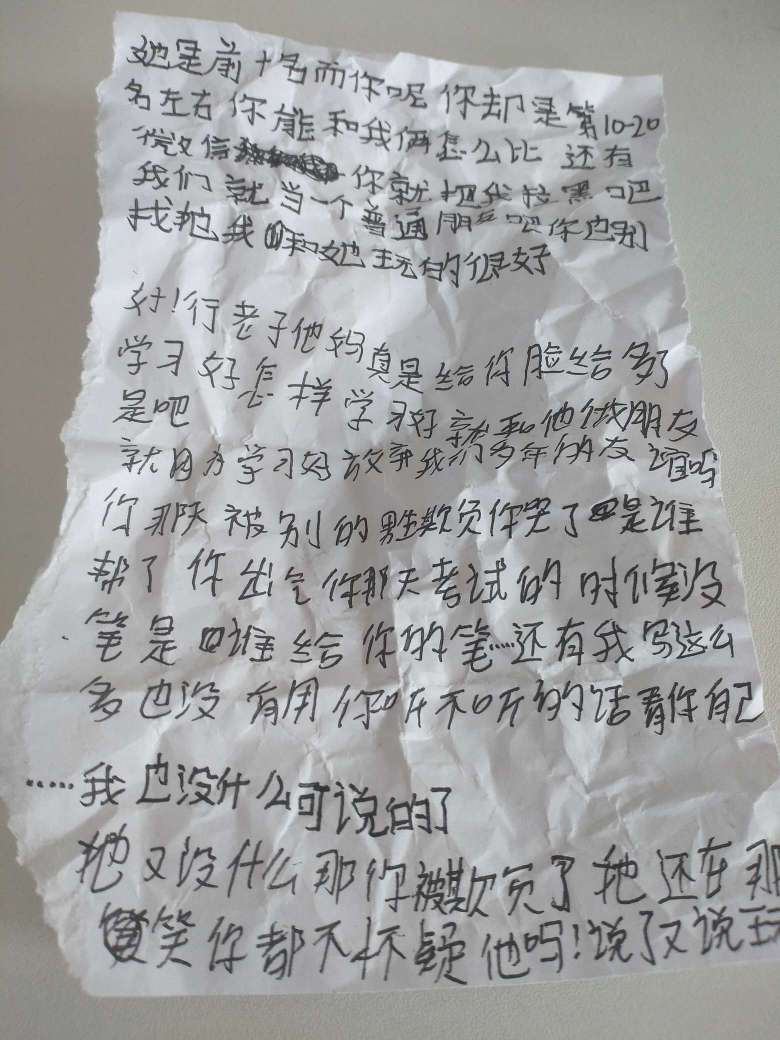 她是前十名而你呢你却是第10-20
名左右你能和我俩怎么比 还有
微信你就把我拉黑吧
我们就当一个普通朋友吧你也别
找她我和她玩的很好
好!行老子他妈真是给你脸给多了
学习好怎样学习好就和他做朋友
是吧
就因为学习好放弃我们多年的友谊吗
你那天被别的男生欺负你哭了是谁
帮了你出气你那天考试的时候没
笔是谁给你的笔……还有我写这么
多也没有用你听不听的话看你自己
……我也没什么可说的了
她又没什么那你被欺负了她还在那
笑你都不怀疑他吗!说了又说玩